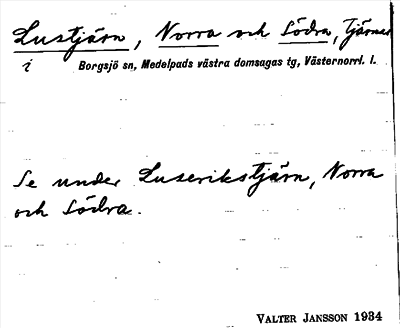 Lustjärn, Norra och Södra, Tjärnar
i Borgsjö sn, Medelpads västra domsagas tg, Västernorrl. l.
Se under Luserikstjärn, Norra
och Södra.
VALTER JANSSON 1934